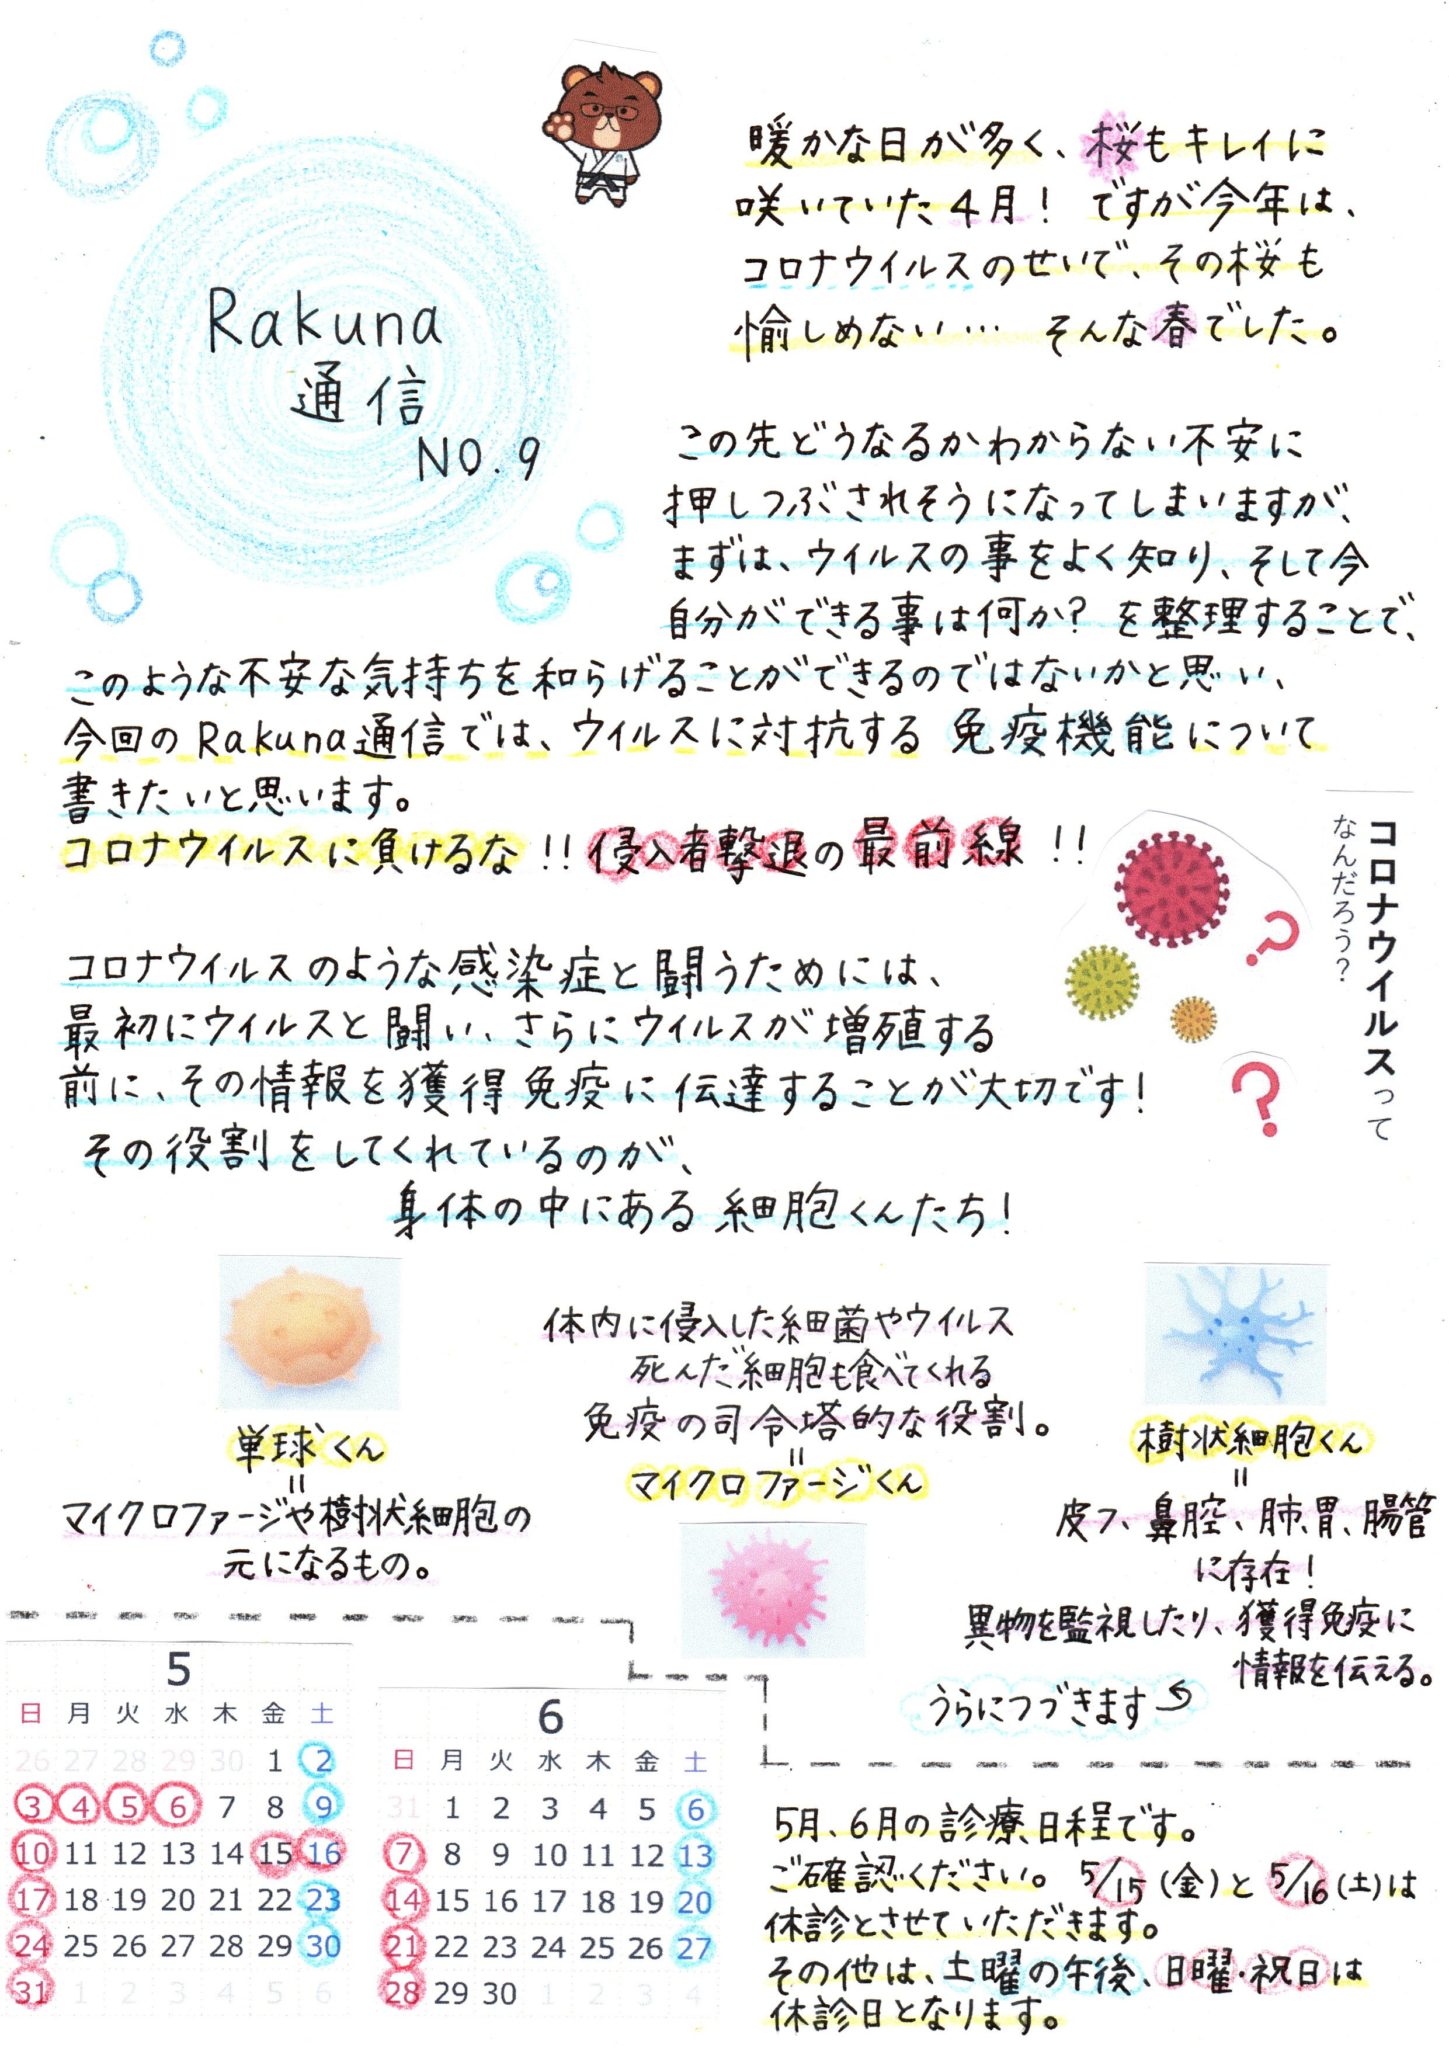 Rakuna
通信
NO.9
暖かな日が多く、桜もキレイに
咲いていた4月！ ですが今年は、
コロナウイルスのせいで、その桜も
愉しめない… そんな春でした。
この先どうなるかわからない不安に
押しつぶされそうになってしまいますが、
まずは、ウイルスの事をよく知り、そして今
自分ができる事は何か？ を整理することで、
このような不安な気持ちを和らげることができるのではないかと思い、
今回のRakuna通信では、ウイルスに対抗する 免疫機能について
書きたいと思います。
コロナウイルスに負けるな!! 侵入者撃退の最前線!!
コロナウイルスって
なんだろう？
?
?
コロナウイルスのような感染症と闘うためには、
最初にウイルスと闘い、さらにウイルスが増殖する
前に、その情報を獲得免疫に伝達することが大切です！
その役割をしてくれているのが、
身体の中にある 細胞くんたち！
単球くん
=
マイクロファージや樹状細胞の
元になるもの。
体内に侵入した細菌やウイルス
死んだ細胞も食べてくれる
免疫の司令塔的な役割。
=
マイクロファージくん
樹状細胞くん
=
皮フ、鼻腔、肺、胃、腸管
に存在！
異物を監視したり、獲得免疫に
情報を伝える。
うらにつづきます
5
日 月 火 水 木 金 土
26 27 28 29 30 1 2
3 4 5 6 7 8 9
10 11 12 13 14 15 16
17 18 19 20 21 22 23
24 25 26 27 28 29 30
31 1 2 3 4 5 6
6
日 月 火 水 木 金 土
31 1 2 3 4 5 6
7 8 9 10 11 12 13
14 15 16 17 18 19 20
21 22 23 24 25 26 27
28 29 30 1 2 3 4
5月、6月の診療日程です。
ご確認ください。 5/15(金)と 5/16(土)は
休診とさせていただきます。
その他は、土曜の午後、日曜・祝日は
休診日となります。